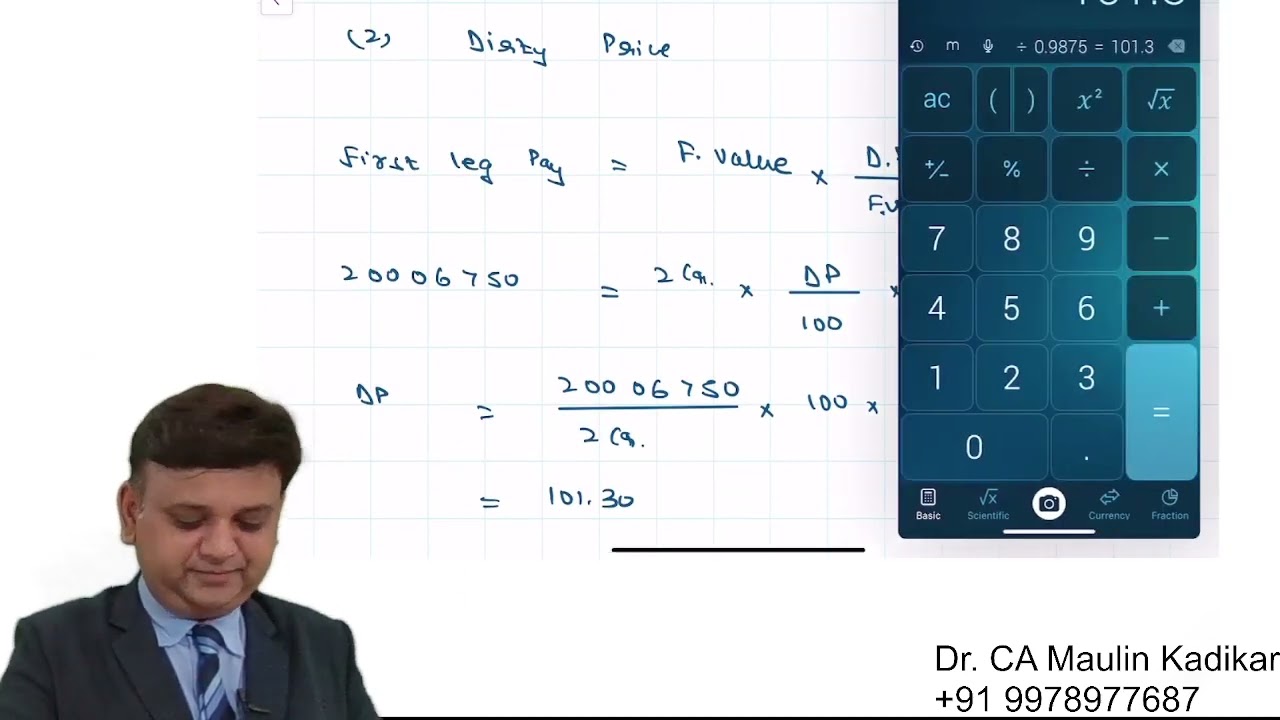 (2) Dirty Price
÷ 0.9875 = 101.3
m
First leg Pay = F. value × D.
F.V
20006750 = 2 Cr. × DP
100
DP = 20006750 × 100 ×
2 Cr.
= 101.30
ac ( ) x² √x
+/− % ÷ ×
7 8 9 −
4 5 6 +
1 2 3
0 . =
√x
Basic Scientific Currency Fraction
Dr. CA Maulin Kadikar
+91 9978977687